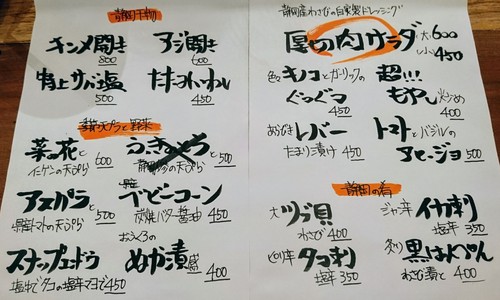 静岡干物
キンメ開き
800
アジ開き
600
特上サバ塩
500
たたみいわし
450
季節天プラと野菜
菜の花と
インゲンの天ぷら
600
うきのとうと
静岡の天ぷら
500
アスパラと
トマトの天ぷら
500
ベビーコーン
炭焼バター醤油 450
スナップエンドウ
塩ゆでタコの塩辛マヨで450
おふくろの
ぬか漬盛
400
静岡産わさびの自家製ドレッシング
厚切肉サラダ
大600
小450
色々キノコとガーリックの
ぐつぐつ
450
超!!!
もやし炒め
400
あらびき
レバー
たまり漬け 450
トマトとバジルの
アヒージョ 500
静岡の肴
大ツブ貝
わさび 400
ジャン辛イカ刺し
塩辛 350
ピリ辛タコ刺し
塩辛 350
炙り黒はんぺん
わさび漬と 400